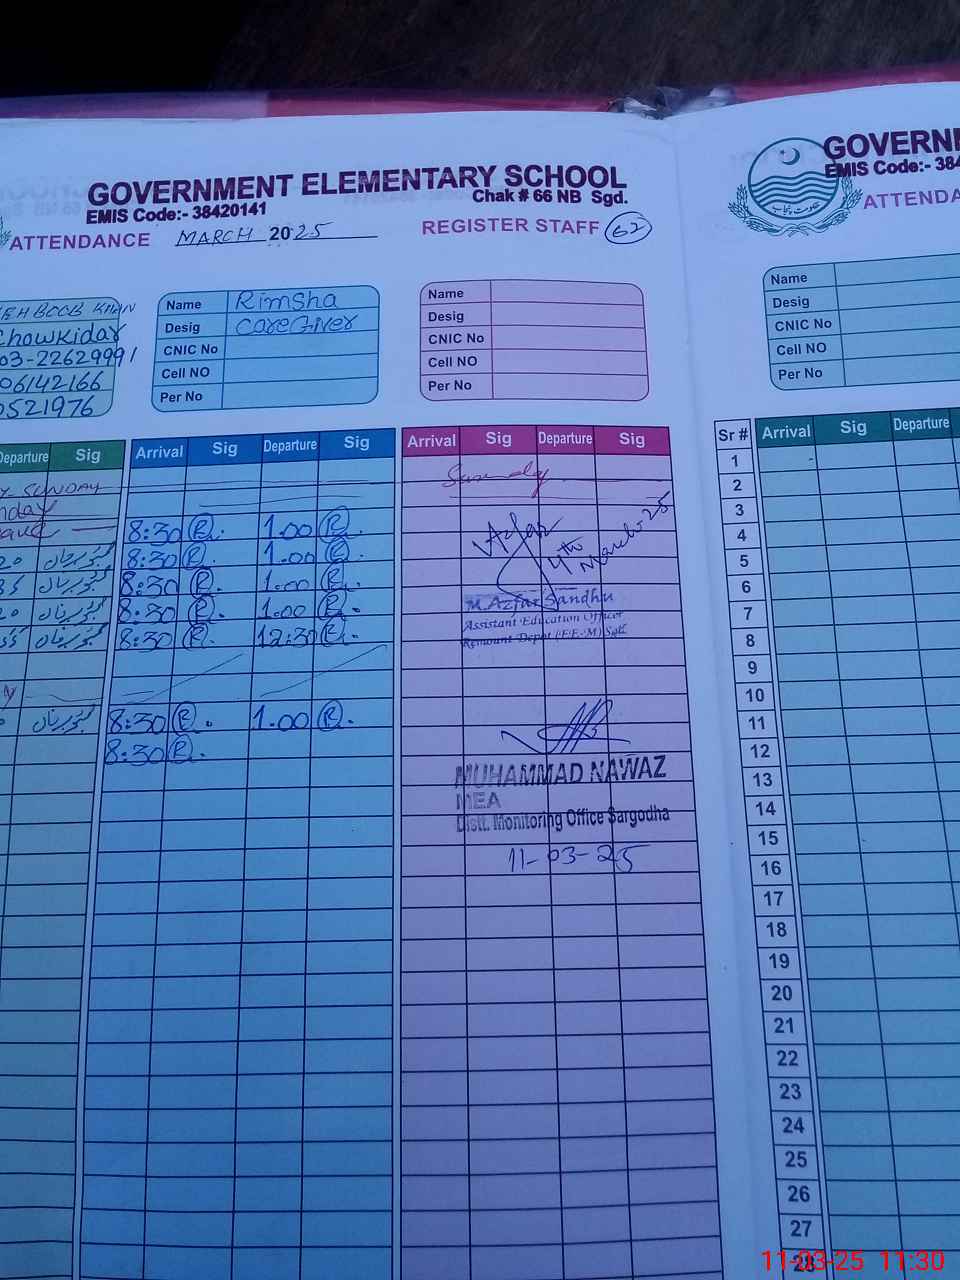 GOVERNMENT ELEMENTARY SCHOOL
EMIS Code:- 38420141 Chak # 66 NB Sgd.
ATTENDANCE MARCH 2025 REGISTER STAFF 62
KHAN
Chowkidar
03-22629991
06142166
0521976
Name Rimsha
Desig CareGiver
CNIC No
Cell NO
Per No
Name
Desig
CNIC No
Cell NO
Per No
Departure Sig
SUNDAY
Arrival Sig Departure Sig
8:30 R. 1.00 R.
8:30 R. 1.00 R.
8:30 R. 1.00 R.
8:30 R. 1.00 R.
8:30 R. 12:30 R.
8:30 R. 1.00 R.
8:30 R.
Arrival Sig Departure Sig
Sunday
Azfar
4th March 25
M. Azfar Sandhu
Assistant Education Officer
Remount Depot (F.E.M) Sgd.
MUHAMMAD NAWAZ
MEA
Distt. Monitoring Office Sargodha
11-03-25
GOVERNM
EMIS Code:- 384
ATTENDA
حکومت پنجاب
Name
Desig
CNIC No
Cell NO
Per No
Sr # Arrival Sig Departure
1
2
3
4
5
6
7
8
9
10
11
12
13
14
15
16
17
18
19
20
21
22
23
24
25
26
27
28
11-03-25 11:30